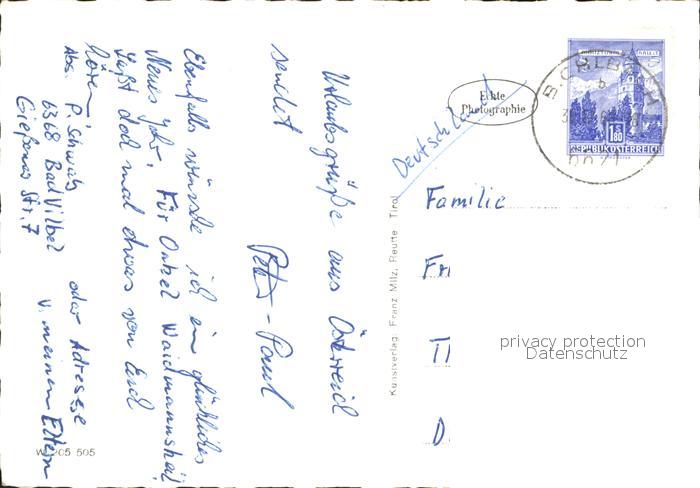 Urlaubsgrüße aus Österreich
sendet Peter-Paul
Ebenfalls wünsche ich ein glückliches
Neues Jahr. Für Onkel Waidmannsheil
Laßt doch mal etwas von Euch
hören
Abs. P. Schwab
6368 Bad Vilbel
Gießener Str. 7
oder Adresse
v. meinen Eltern
W 505
Kunstverlag Franz Milz, Reutte Tirol
Echte
Photographie
Deutschland
1.80
REPUBLIK ÖSTERREICH
Familie
Fr
D
privacy protection
Datenschutz